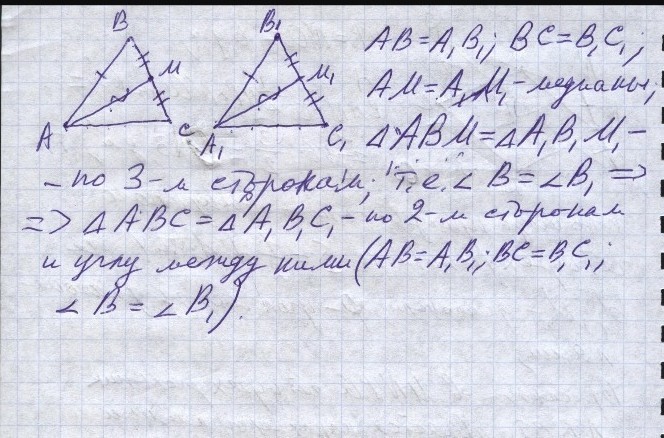 B B₁ AB=A₁B₁; BC=B₁C₁;
M M₁ AM=A₁M₁-медианы;
A C A₁ C₁ △ABM=△A₁B₁M₁-
- по 3-м сторонам; т.е. ∠B=∠B₁ =>
=> △ABC=△A₁B₁C₁-по 2-м сторонам
и углу между ними (AB=A₁B₁; BC=B₁C₁;
∠B=∠B₁).